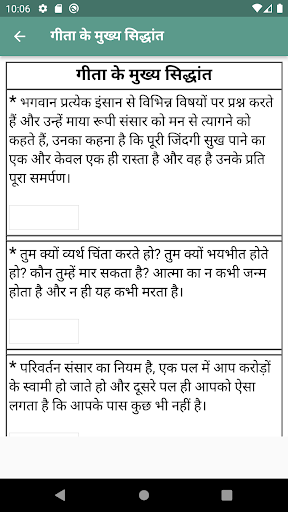 10:06
गीता के मुख्य सिद्धांत
गीता के मुख्य सिद्धांत
* भगवान प्रत्येक इंसान से विभिन्न विषयों पर प्रश्न करते
हैं और उन्हें माया रूपी संसार को मन से त्यागने को
कहते हैं, उनका कहना है कि पूरी जिंदगी सुख पाने का
एक और केवल एक ही रास्ता है और वह है उनके प्रति
पूरा समर्पण।
* तुम क्यों व्यर्थ चिंता करते हो? तुम क्यों भयभीत होते
हो? कौन तुम्हें मार सकता है? आत्मा का न कभी जन्म
होता है और न ही यह कभी मरता है।
* परिवर्तन संसार का नियम है, एक पल में आप करोड़ों
के स्वामी हो जाते हो और दूसरे पल ही आपको ऐसा
लगता है कि आपके पास कुछ भी नहीं है।